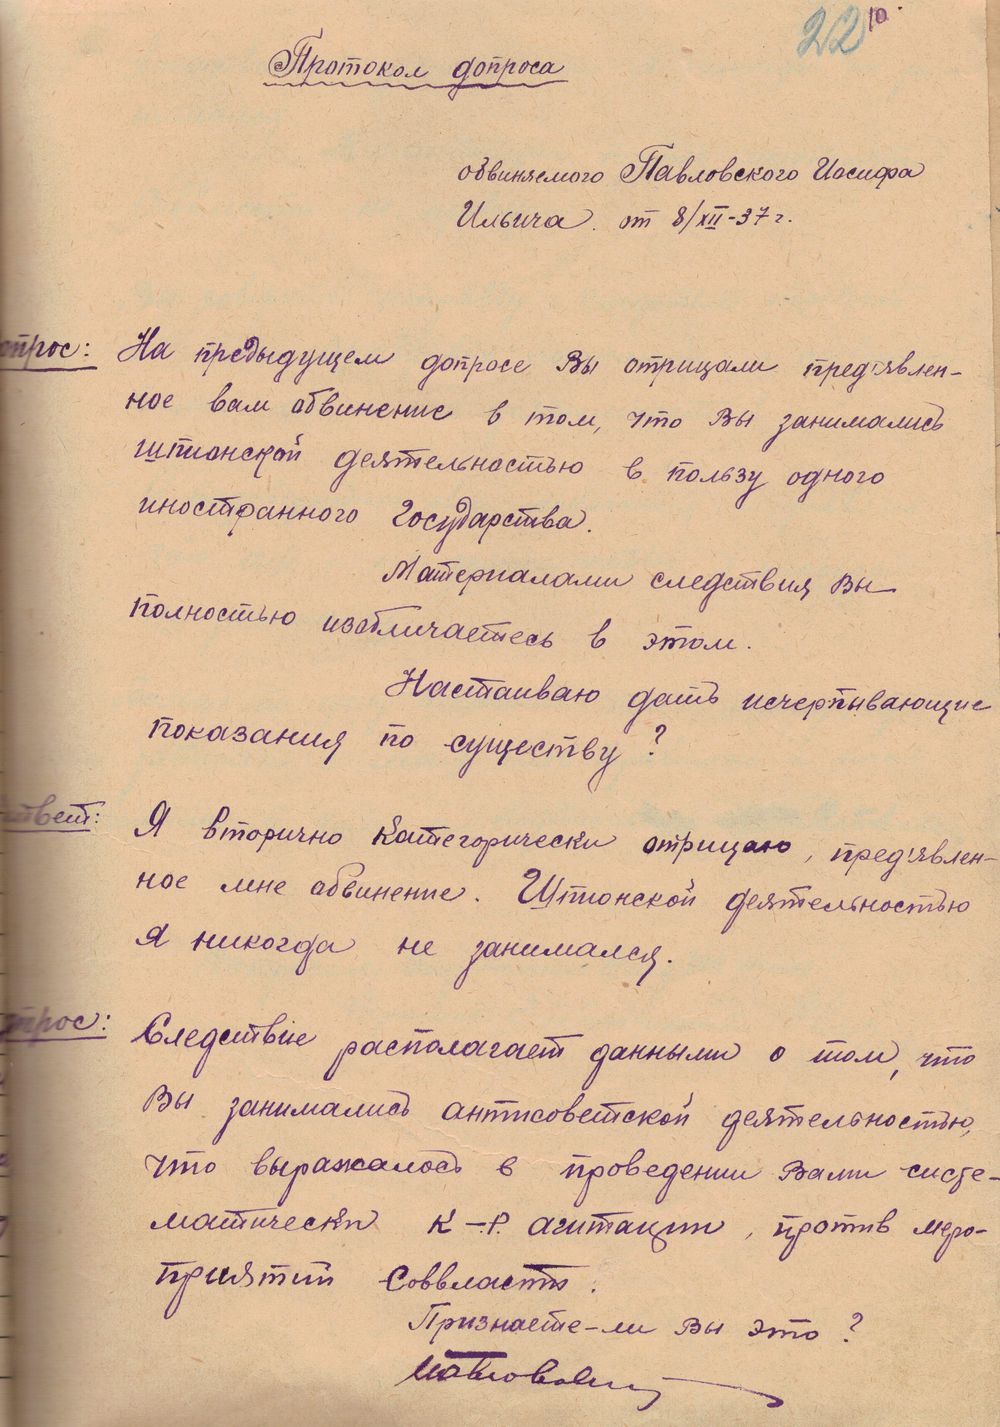 22 10.
Протокол допроса
обвиняемого Павловского Иосифа
Ильича. от 8/XII-37 г.
опрос: На предыдущем допросе Вы отрицали пред'явлен-
ное вам обвинение в том, что Вы занимались
шпионской деятельностью в пользу одного
иностранного государства.
Материалами следствия Вы
полностью изобличаетесь в этом.
Настаиваю дать исчерпывающие
показания по существу?
твет: Я вторично категорически отрицаю, пред'явлен-
ное мне обвинение. Шпионской деятельностью
я никогда не занимался.
прос: Следствие располагает данными о том, что
Вы занимались антисоветской деятельностью,
что выражалось в проведении Вами систе-
матически к-р. агитации, против меро-
приятий Соввласти.
Признаете-ли Вы это?